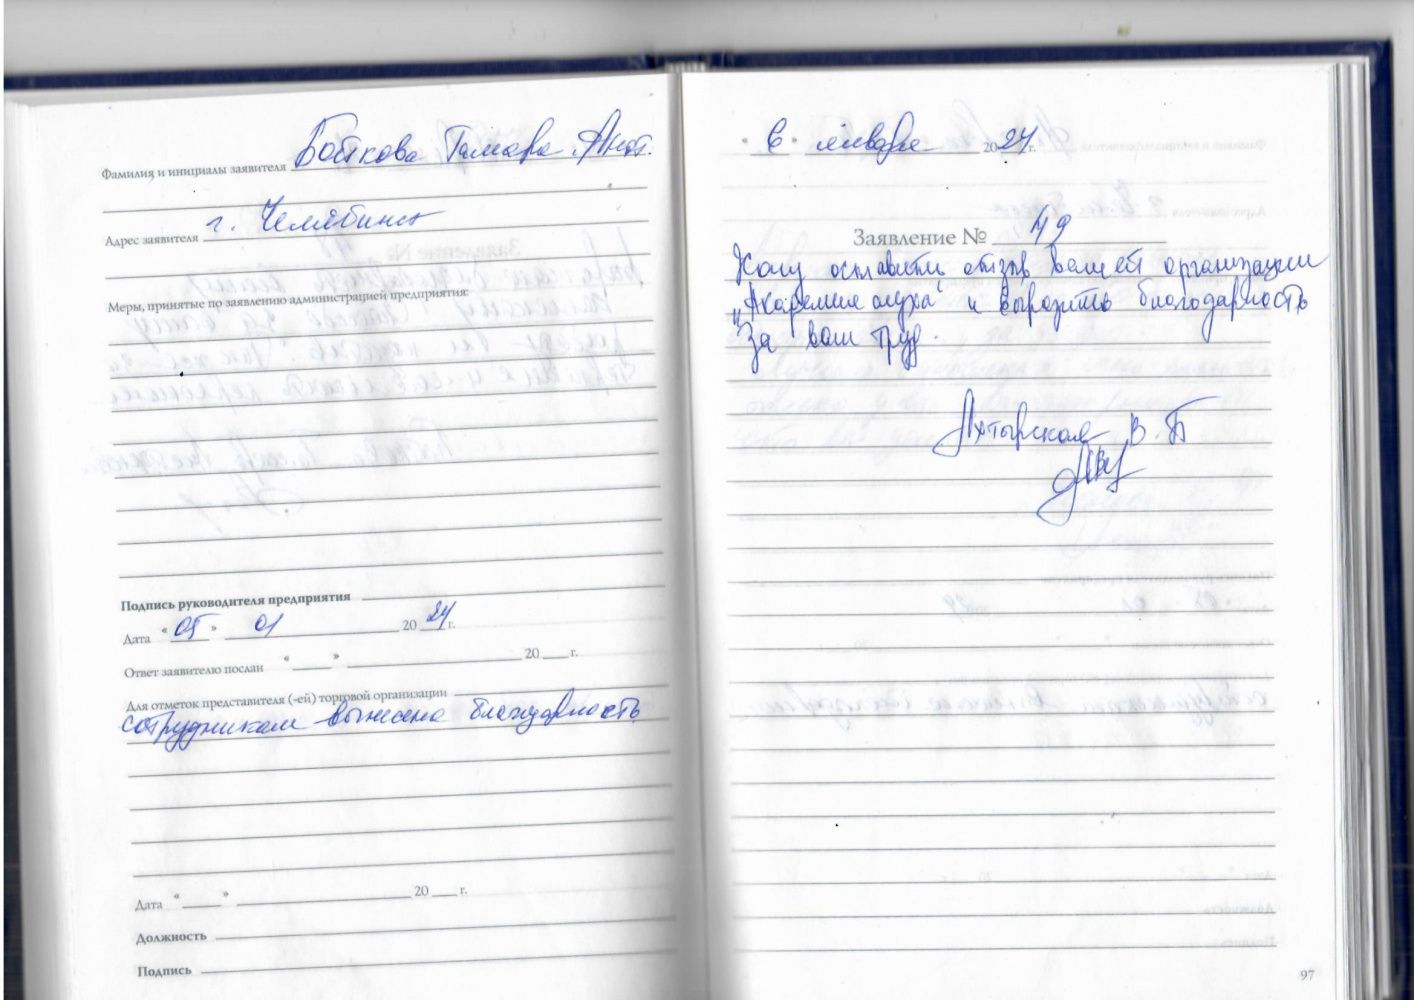 Фамилия и инициалы заявителя Бобкова Тамара Анат.
Адрес заявителя г. Челябинск
Меры, принятые по заявлению администрацией предприятия:
Подпись руководителя предприятия
Дата « 05 » 01 20 24 г.
Ответ заявителю послан « » 20 г.
Для отметок представителя (-ей) торговой организации
сотрудникам вынесена благодарность
Дата « » 20 г.
Должность
Подпись
« 6 » января 2024 г.
Заявление № 49
Хочу оставить отзыв вашей организации
„Академия слуха“ и выразить благодарность
за ваш труд.
Ахтырская В.Б
97